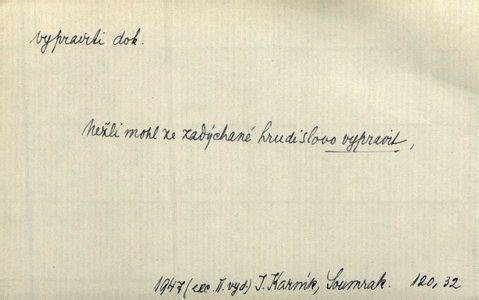 vypraviti dok.
Nežli mohl ze zadýchané hrudi slovo vypravit,
1947 (exc. II. vyd.) J. Karník, Soumrak. 120, 32